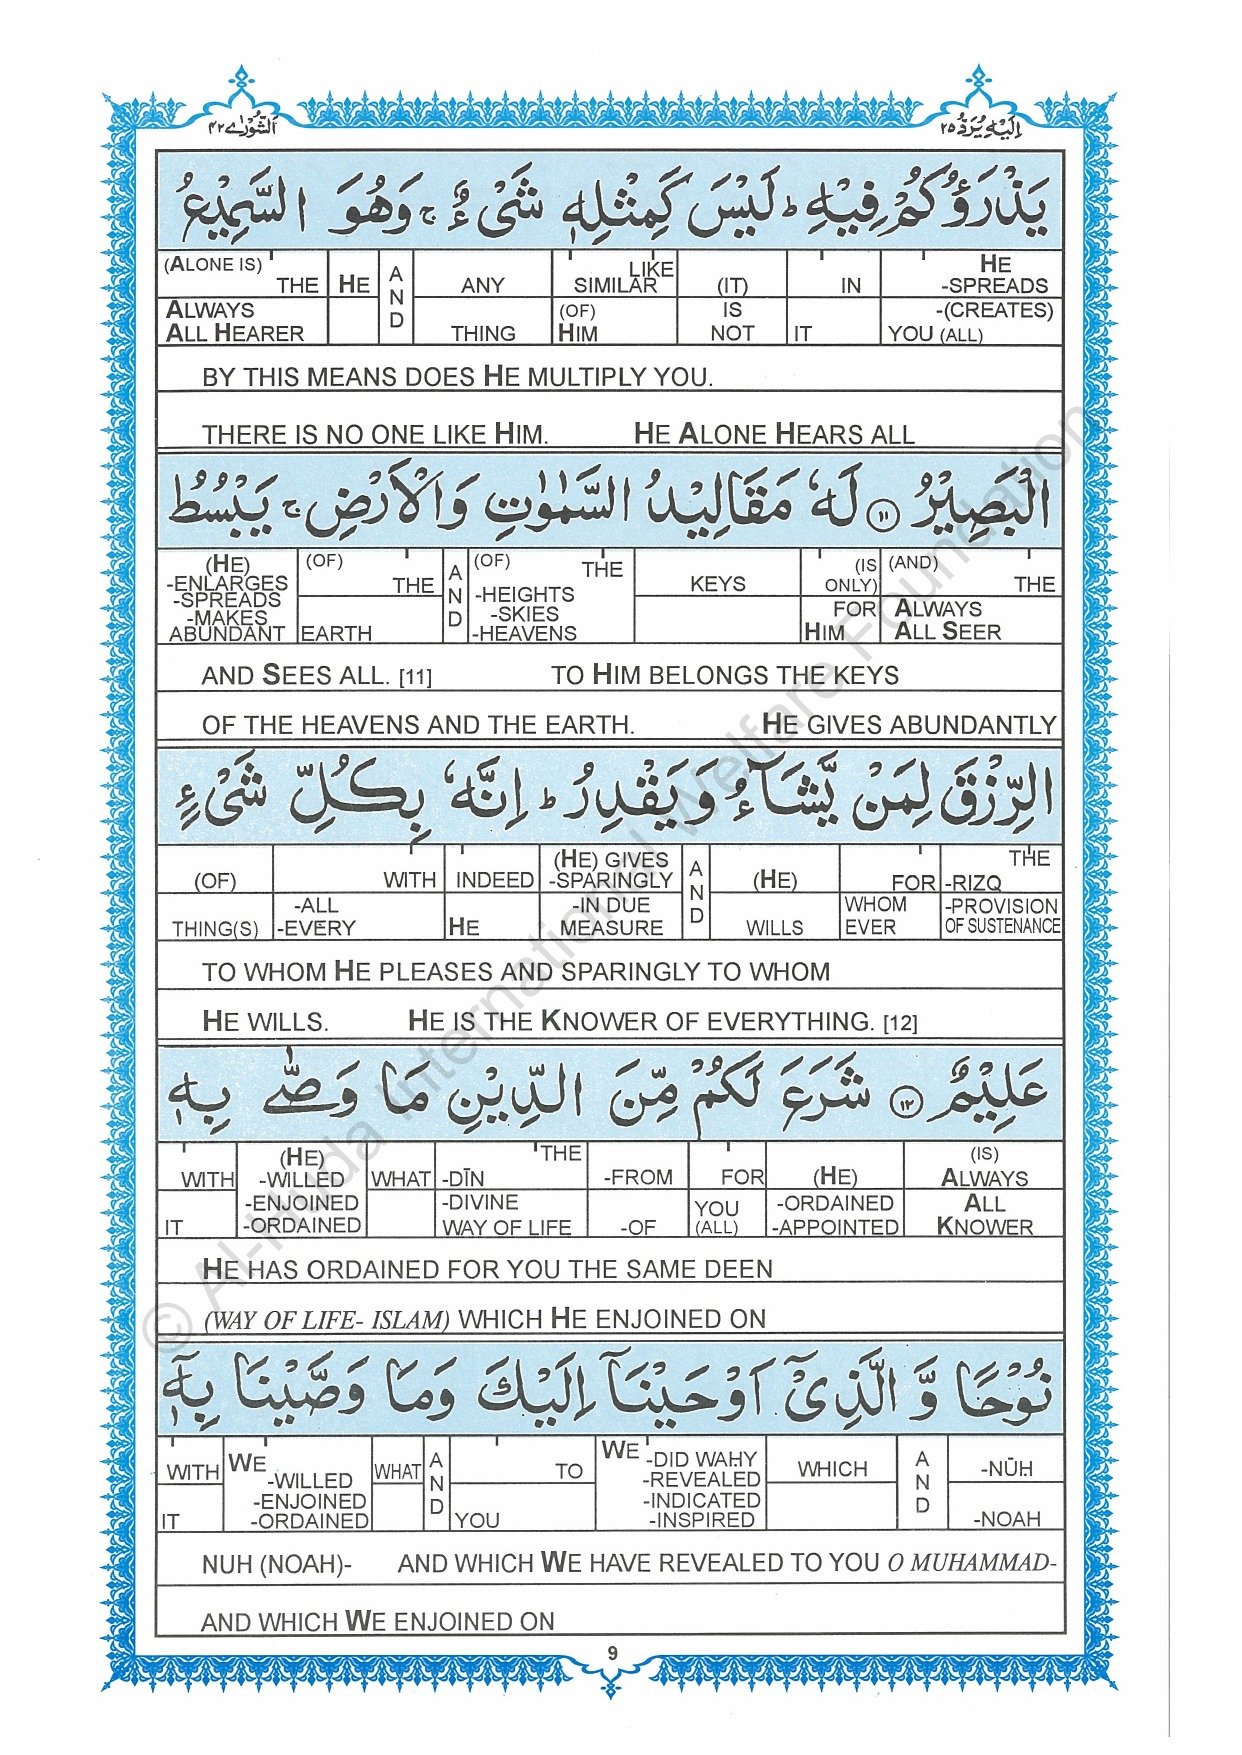 اَلشُّوْرٰى ٤٢ اِلَيْهِ يُرَدُّ ٢٥
يَذْرَؤُكُمْ فِيْهِ ؕ لَيْسَ كَمِثْلِهٖ شَيْءٌ ۚ وَهُوَ السَّمِيْعُ
(ALONE IS) THE HE AND ANY LIKE SIMILAR (IT) IN HE -SPREADS
ALWAYS ALL HEARER THING (OF) HIM IS NOT IT -(CREATES) YOU (ALL)
BY THIS MEANS DOES HE MULTIPLY YOU.
THERE IS NO ONE LIKE HIM. HE ALONE HEARS ALL
الْبَصِيْرُ ١١ لَهٗ مَقَالِيْدُ السَّمٰوٰتِ وَالْاَرْضِ ۚ يَبْسُطُ
(HE) -ENLARGES -SPREADS -MAKES ABUNDANT (OF) THE AND (OF) THE -HEIGHTS -SKIES -HEAVENS KEYS (IS ONLY) (AND) THE
EARTH FOR HIM ALWAYS ALL SEER
AND SEES ALL. [11] TO HIM BELONGS THE KEYS
OF THE HEAVENS AND THE EARTH. HE GIVES ABUNDANTLY
الرِّزْقَ لِمَنْ يَّشَآءُ وَيَقْدِرُ ؕ اِنَّهٗ بِكُلِّ شَيْءٍ
(OF) WITH INDEED (HE) GIVES -SPARINGLY AND (HE) FOR THE -RIZQ
THING(S) -ALL -EVERY HE -IN DUE MEASURE WILLS WHOM EVER -PROVISION OF SUSTENANCE
TO WHOM HE PLEASES AND SPARINGLY TO WHOM
HE WILLS. HE IS THE KNOWER OF EVERYTHING. [12]
عَلِيْمٌ ١٢ شَرَعَ لَكُمْ مِّنَ الدِّيْنِ مَا وَصّٰى بِهٖ
WITH (HE) -WILLED WHAT THE -DĪN -FROM FOR (HE) (IS) ALWAYS
IT -ENJOINED -ORDAINED -DIVINE WAY OF LIFE -OF YOU (ALL) -ORDAINED -APPOINTED ALL KNOWER
HE HAS ORDAINED FOR YOU THE SAME DEEN
(WAY OF LIFE- ISLAM) WHICH HE ENJOINED ON
نُوْحًا وَّالَّذِيْٓ اَوْحَيْنَآ اِلَيْكَ وَمَا وَصَّيْنَا بِهٖٓ
WITH WE -WILLED WHAT AND TO WE -DID WAḤY -REVEALED WHICH AND -NŪḤ
IT -ENJOINED -ORDAINED YOU -INDICATED -INSPIRED -NOAH
NUH (NOAH)- AND WHICH WE HAVE REVEALED TO YOU O MUHAMMAD-
AND WHICH WE ENJOINED ON
9
© Al-Huda International Welfare Foundation